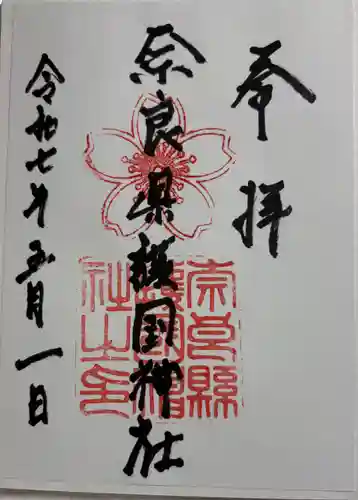 奉拝
奈良県護国神社
奈良縣護國神社之印
令和七年五月一日